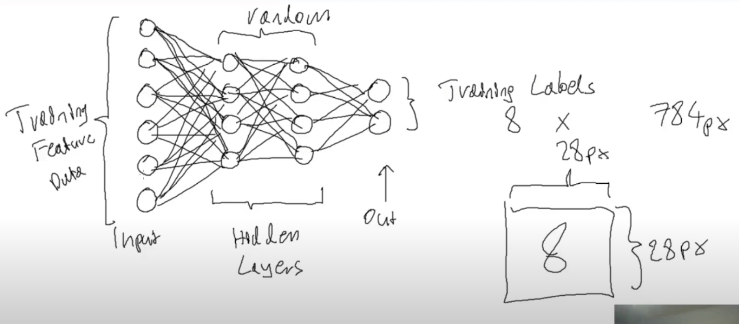 random
Training
Feature
Data
Input
Hidden
Layers
Out
Training Labels
8 x
784px
28px
8
28px